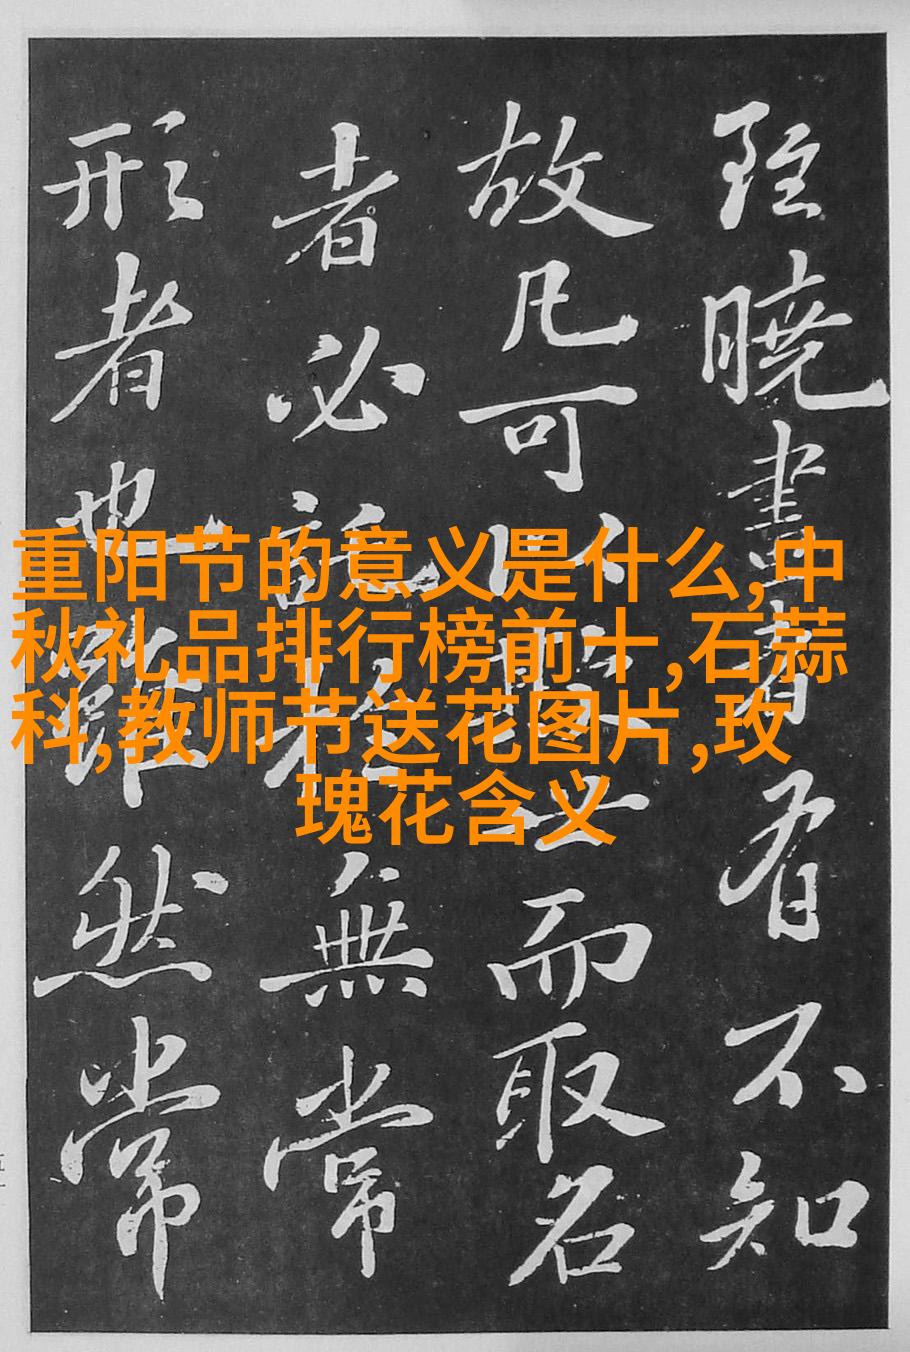 重阳节的意义是什么,中
秋礼品排行榜前十,石蒜
科,教师节送花图片,玫
瑰花含义
雖曉畫者有不知
故凡可以欺世而取名
者必託於無常
形者也雖然常